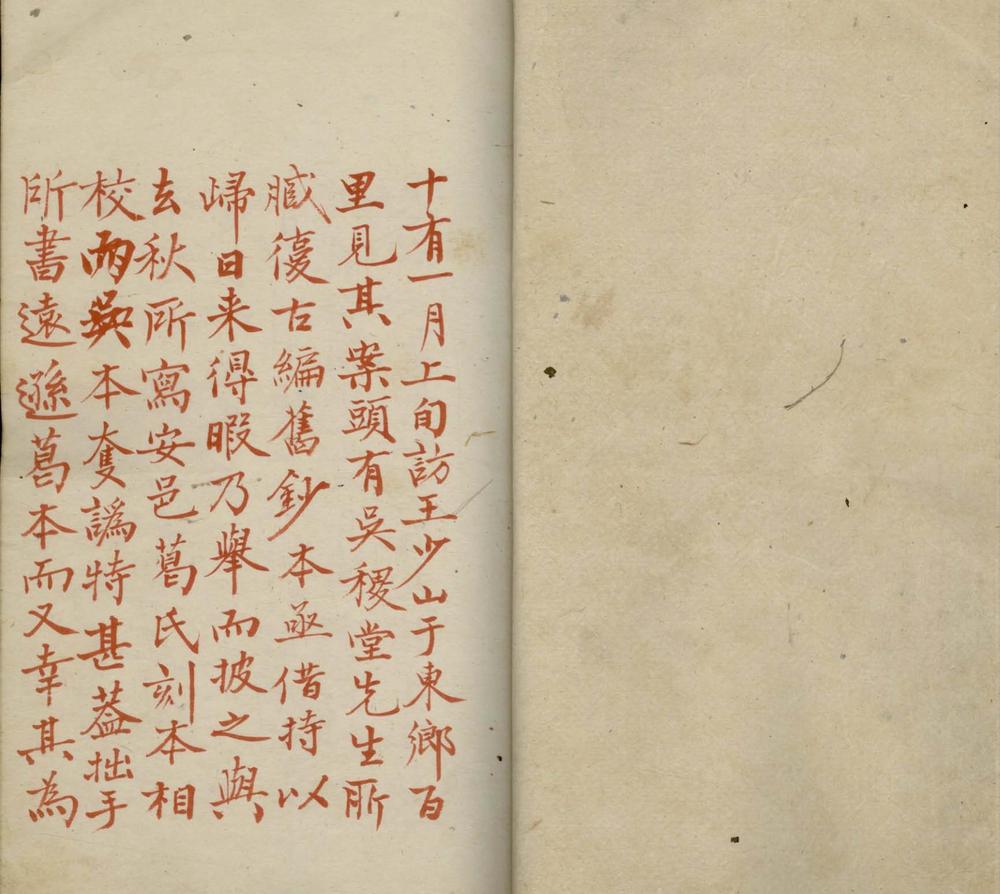 十有一月上旬訪王少山于東鄉百
里見其案頭有吳稷堂先生所
臧復古編舊鈔本亟借持以
歸日来得暇乃舉而披之與
去秋所寫安邑葛氏刻本相
校兩吳本奪譌特甚葢拙手
所書遠遜葛本而又幸其為